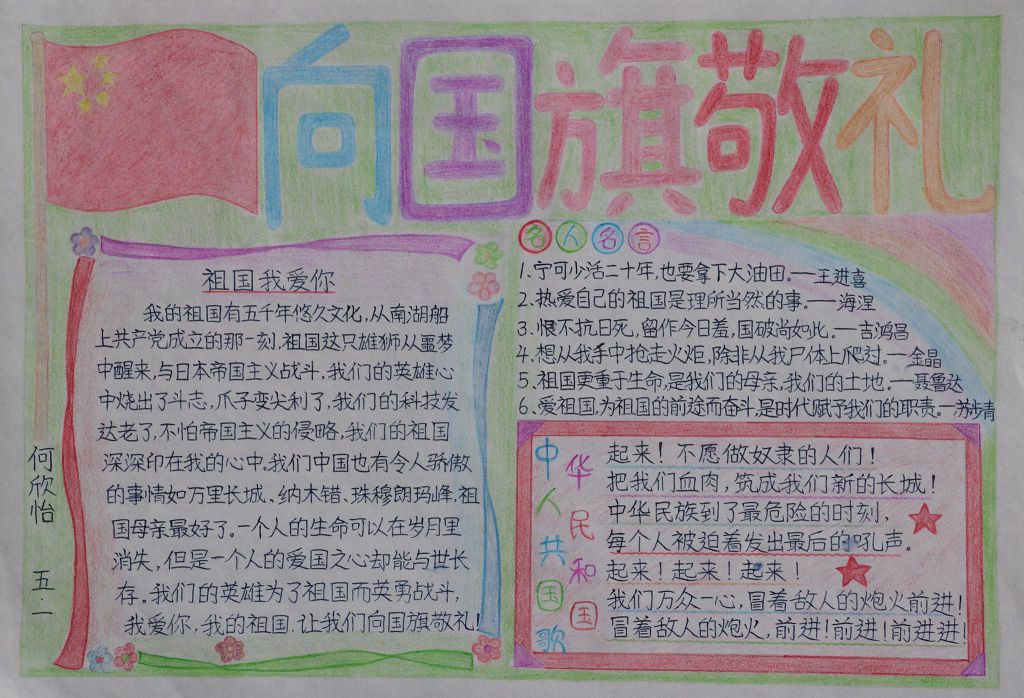 向国旗敬礼
祖国我爱你
我的祖国有五千年悠久文化,从南湖船
上共产党成立的那一刻.祖国这只雄狮从噩梦
中醒来,与日本帝国主义战斗,我们的英雄心
中烧出了斗志,爪子变尖利了,我们的科技发
达老了,不怕帝国主义的侵略.我们的祖国
深深印在我的心中.我们中国也有令人骄傲
的事情如万里长城、纳木错、珠穆朗玛峰.祖
国母亲最好了。一个人的生命可以在岁月里
消失,但是一个人的爱国之心却能与世长
存.我们的英雄为了祖国而英勇战斗,
我爱你,我的祖国.让我们向国旗敬礼!
何欣怡 五.二
名人名言
1.宁可少活二十年,也要拿下大油田.——王进喜
2.热爱自己的祖国是理所当然的事.——海涅
3.恨不抗日死,留作今日羞,国破尚如此.—吉鸿昌
4.想从我手中抢走火炬,除非从我尸体上爬过.—金晶
5.祖国更重于生命,是我们的母亲,我们的土地.—聂鲁达
6.爱祖国,为祖国的前途而奋斗,是时代赋予我们的职责.—苏步青
中华人民共和国国歌
起来!不愿做奴隶的人们!
把我们血肉,筑成我们新的长城!
中华民族到了最危险的时刻,
每个人被迫着发出最后的吼声。
起来!起来!起来!
我们万众一心,冒着敌人的炮火前进!
冒着敌人的炮火,前进!前进!前进进!